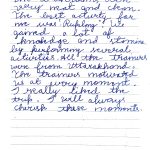 very neat and clean
The best activity for
me was Rafting. I
gained a lot of
knowledge and stamina
by performing several
activities. All the trainers
were from Uttarakhand.
The trainers motivated
us at every moment.
I really liked the
trip. I will always
cherish these moments